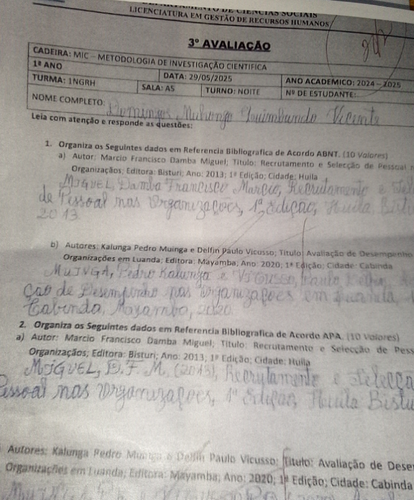 DEPARTAMENTO DE CIÊNCIAS SOCIAIS
LICENCIATURA EM GESTÃO DE RECURSOS HUMANOS
3ª AVALIAÇÃO
CADEIRA: MIC – METODOLOGIA DE INVESTIGAÇÃO CIENTIFICA
1º ANO DATA: 29/05/2025 ANO ACADEMICO: 2024 – 2025
TURMA: 1NGRH SALA: A5 TURNO: NOITE Nº DE ESTUDANTE:
NOME COMPLETO: Domingos Vicente
Leia com atenção e responde as questões:
1. Organiza os Seguintes dados em Referencia Bibliografica de Acordo ABNT. (10 Valores)
a) Autor: Marcio Francisco Damba Miguel; Titulo: Recrutamento e Selecção de Pessoal
Organizações; Editora: Bisturi; Ano: 2013; 1ª Edição; Cidade: Huila
MIGUEL, Damba Francisco Marcio, Recrutamento e
de Pessoal nas Organizações, 1ª Edição, Huila,
2013
b) Autores: Kalunga Pedro Muinga e Delfin Paulo Vicusso; Titulo: Avaliação de Desempenho
Organizações em Luanda; Editora: Mayamba; Ano: 2020; 1ª Edição; Cidade: Cabinda
MUINGA, Pedro Kalunga e
ção de Desempenho nas Organizações em Luanda,
Cabinda, Mayamba, 2020
2. Organiza os Seguintes dados em Referencia Bibliografica de Acordo APA. (10 Valores)
a) Autor: Marcio Francisco Damba Miguel; Titulo: Recrutamento e Selecção de
Organizações; Editora: Bisturi; Ano: 2013; 1ª Edição; Cidade: Huila
MIGUEL, D.F.M, (2013), Recrutamento e Selecção
Pessoal nas Organizações, 1ª Edição, Huila
Autores: Kalunga Pedro Muinga e Delfin Paulo Vicusso; Titulo: Avaliação de
Organizações em Luanda; Editora: Mayamba; Ano: 2020; 1ª Edição; Cidade: Cabinda